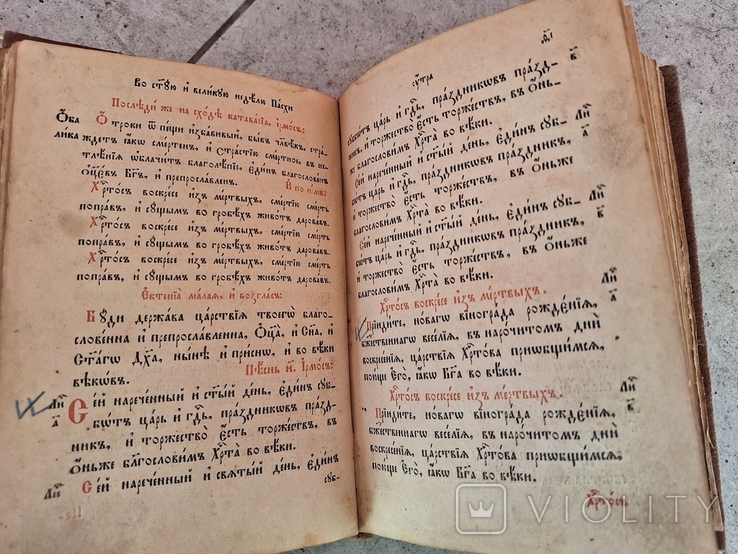 Во ст҃ую и҆ великую неделю Пасхи
Последи же на сходе катавасїа, і҆рмосъ:
Ѻба Ѻтроки ѿ пещи избавивый, бывъ человекъ, стра-
лика ждетъ ꙗкѡ смертенъ, и страстїю смертное, въ не-
тленїѧ ѡблачитъ благолепїе, единъ благословенъ
ѻц҃евъ Бг҃ъ, и препрославленъ. И по и҆мъ:
Хрⷭ҇тосъ воскресе изъ мертвыхъ, смертїю смерть
поправъ, и сущымъ во гробехъ животъ даровавъ.
Хрⷭ҇тосъ воскресе изъ мертвыхъ, смертїю смерть
поправъ, и сущымъ во гробехъ животъ даровавъ.
Хрⷭ҇тосъ воскресе изъ мертвыхъ, смертїю смерть
поправъ, и сущымъ во гробехъ животъ даровавъ.
Ектенїа малая, и возгласъ:
Буди держава царствїя твоегѡ благо-
словенна и препрославленна, Ѻц҃а, и Сн҃а, и
Ст҃агѡ Дх҃а, ныне и приснѡ, и во веки
вековъ. Песнь и҃. Ірмосъ:
Сей нареченный и ст҃ый день, единъ су-
ббѡтъ царь и гдⷭ҇ь, праздникѡвъ празд-
никъ, и торжество есть торжествъ, въ
ѻньже благословимъ Хрⷭ҇та во веки.
Сей нареченный и святый день, единъ
суб-
утра
субѡтъ царь и гдⷭ҇ь, праздникѡвъ празд-
никъ, и торжество есть торжествъ, въ ѻньже
благословимъ Хрⷭ҇та во веки.
Сей нареченный и ст҃ый день, единъ суб-
ѡтъ царь и гдⷭ҇ь, праздникѡвъ праздникъ,
и торжество есть торжествъ, въ ѻньже
благословимъ Хрⷭ҇та во веки.
Сей нареченный и ст҃ый день, единъ суб-
ѡтъ царь и гдⷭ҇ь, праздникѡвъ праздникъ,
и торжество есть торжествъ, въ ѻньже
благословимъ Хрⷭ҇та во веки.
Хрⷭ҇тосъ воскресе изъ мертвыхъ.
Прїидите, новагѡ вїнограда рожденїя,
бжⷭ҇ственнагѡ веселїя, въ нарочитомъ дни
воскресенїя, царствїя Хрⷭ҇това приѡбщимся,
поюще Егѡ, ꙗкѡ Бг҃а во веки.
Хрⷭ҇тосъ воскресе изъ мертвыхъ.
Прїидите, новагѡ вїнограда рожденїя,
бжⷭ҇ственнагѡ веселїя, въ нарочитомъ дни
воскресенїя, царствїя Хрⷭ҇това приѡбщимся,
поюще Егѡ, ꙗкѡ Бг҃а во веки.
Хрⷭ҇тосъ
VIOLITY